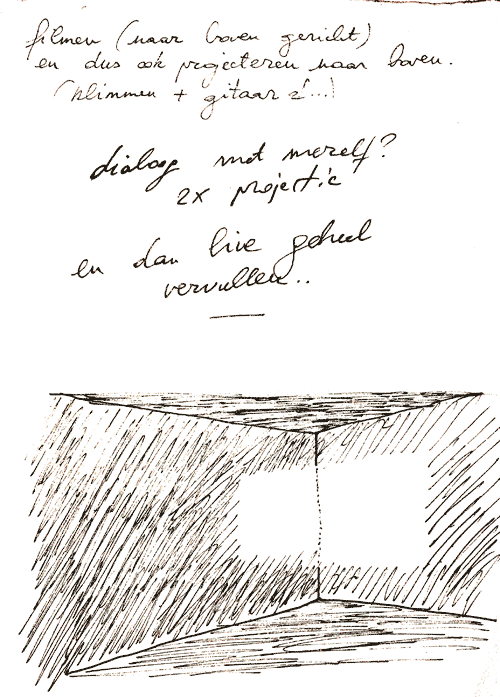 filmen (naar boven gericht)
en dus ook projecteren naar boven.
(klimmen + gitaar z'...)
dialoog met mezelf?
2x projectie
en dan live geheel
vervullen..